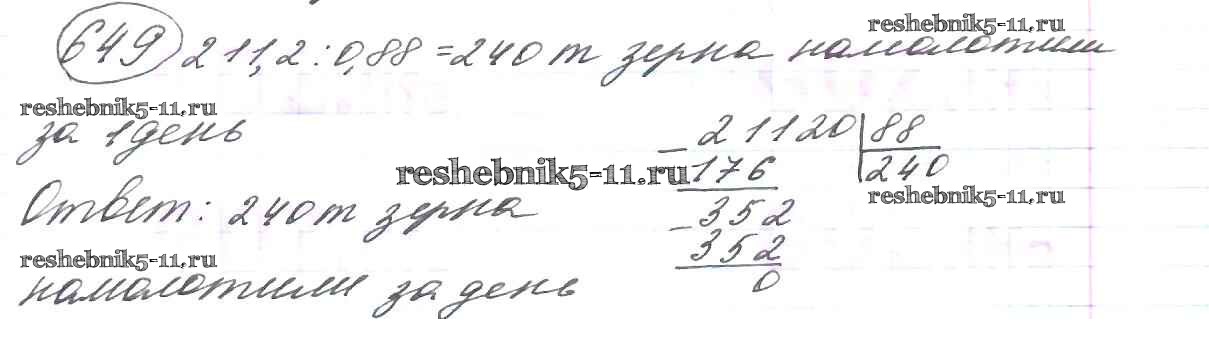 reshebnik5-11.ru
649 211,2 : 0,88 = 240 т зерна намолотили
reshebnik5-11.ru
за 1 день
21120 | 88
reshebnik5-11.ru
176 | 240
reshebnik5-11.ru
Ответ: 240 т зерна
352
352
reshebnik5-11.ru
намолотили за день
0